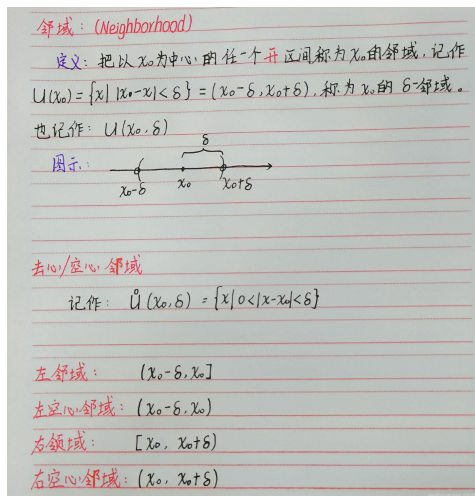 邻域：(Neighborhood)
定义：把以x₀为中心的任一个开区间称为x₀的邻域，记作
U(x₀)={x| |x₀-x|<δ}=(x₀-δ,x₀+δ)，称为x₀的δ-邻域。
也记作：U(x₀,δ)
图示：
δ
x₀-δ x₀ x₀+δ
去心/空心邻域
记作：Ů(x₀,δ)={x|0<|x-x₀|<δ}
左邻域：(x₀-δ,x₀]
左空心邻域：(x₀-δ,x₀)
右领域：[x₀, x₀+δ)
右空心邻域：(x₀, x₀+δ)